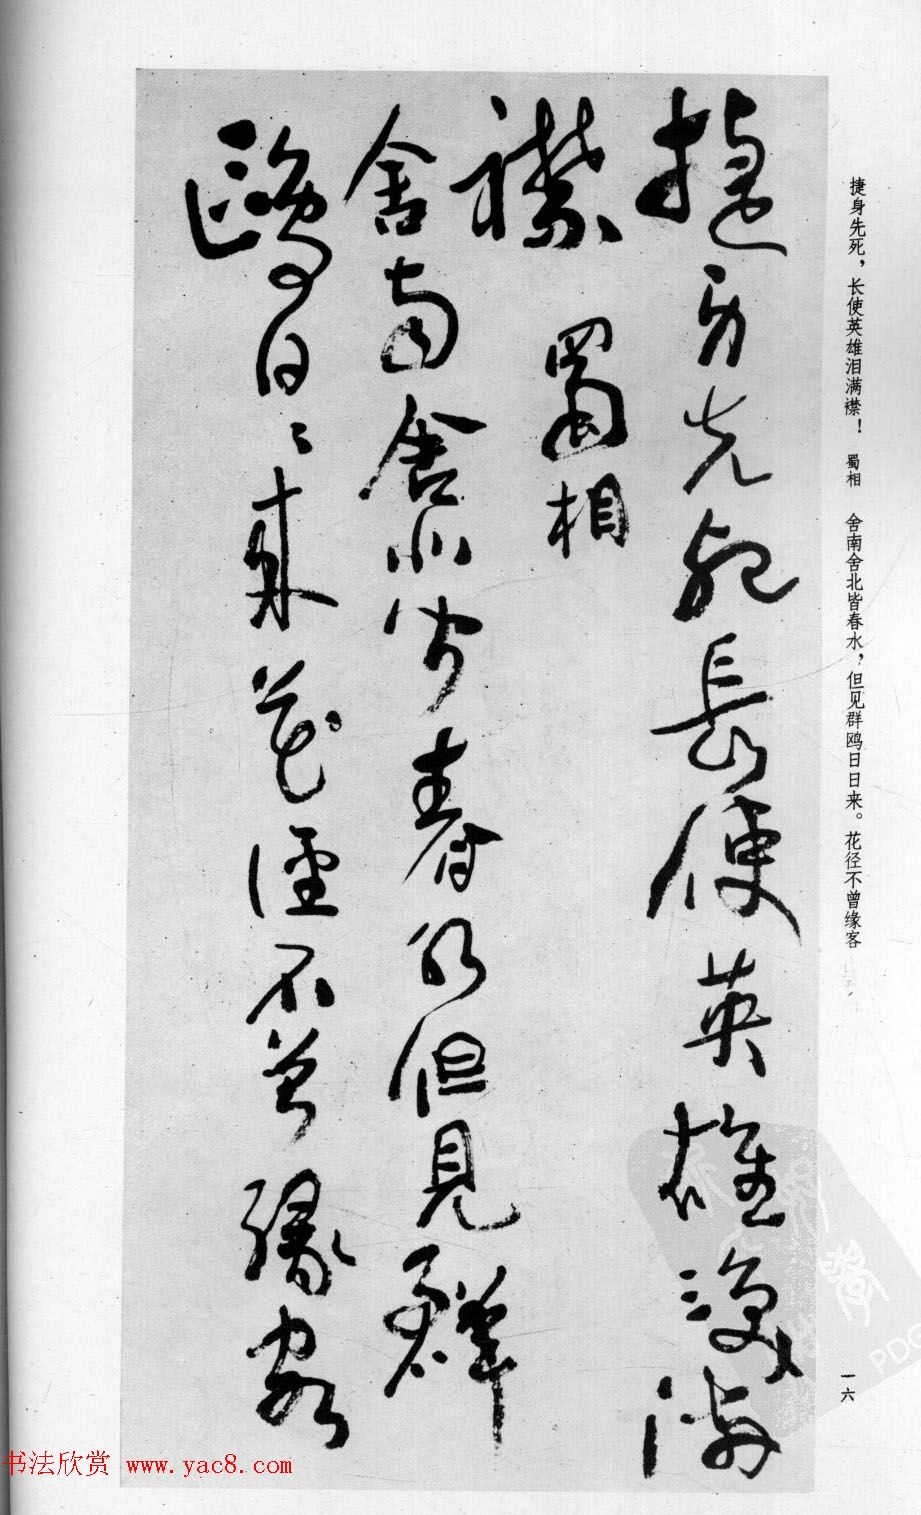 捷身先死長使英雄淚滿
襟 蜀相
舍南舍北皆春水但見群
鷗日〻來花徑不曾緣客
捷身先死，长使英雄泪满襟！ 蜀相 舍南舍北皆春水，但见群鸥日日来。花径不曾缘客
一六
书法欣赏 www.yac8.com